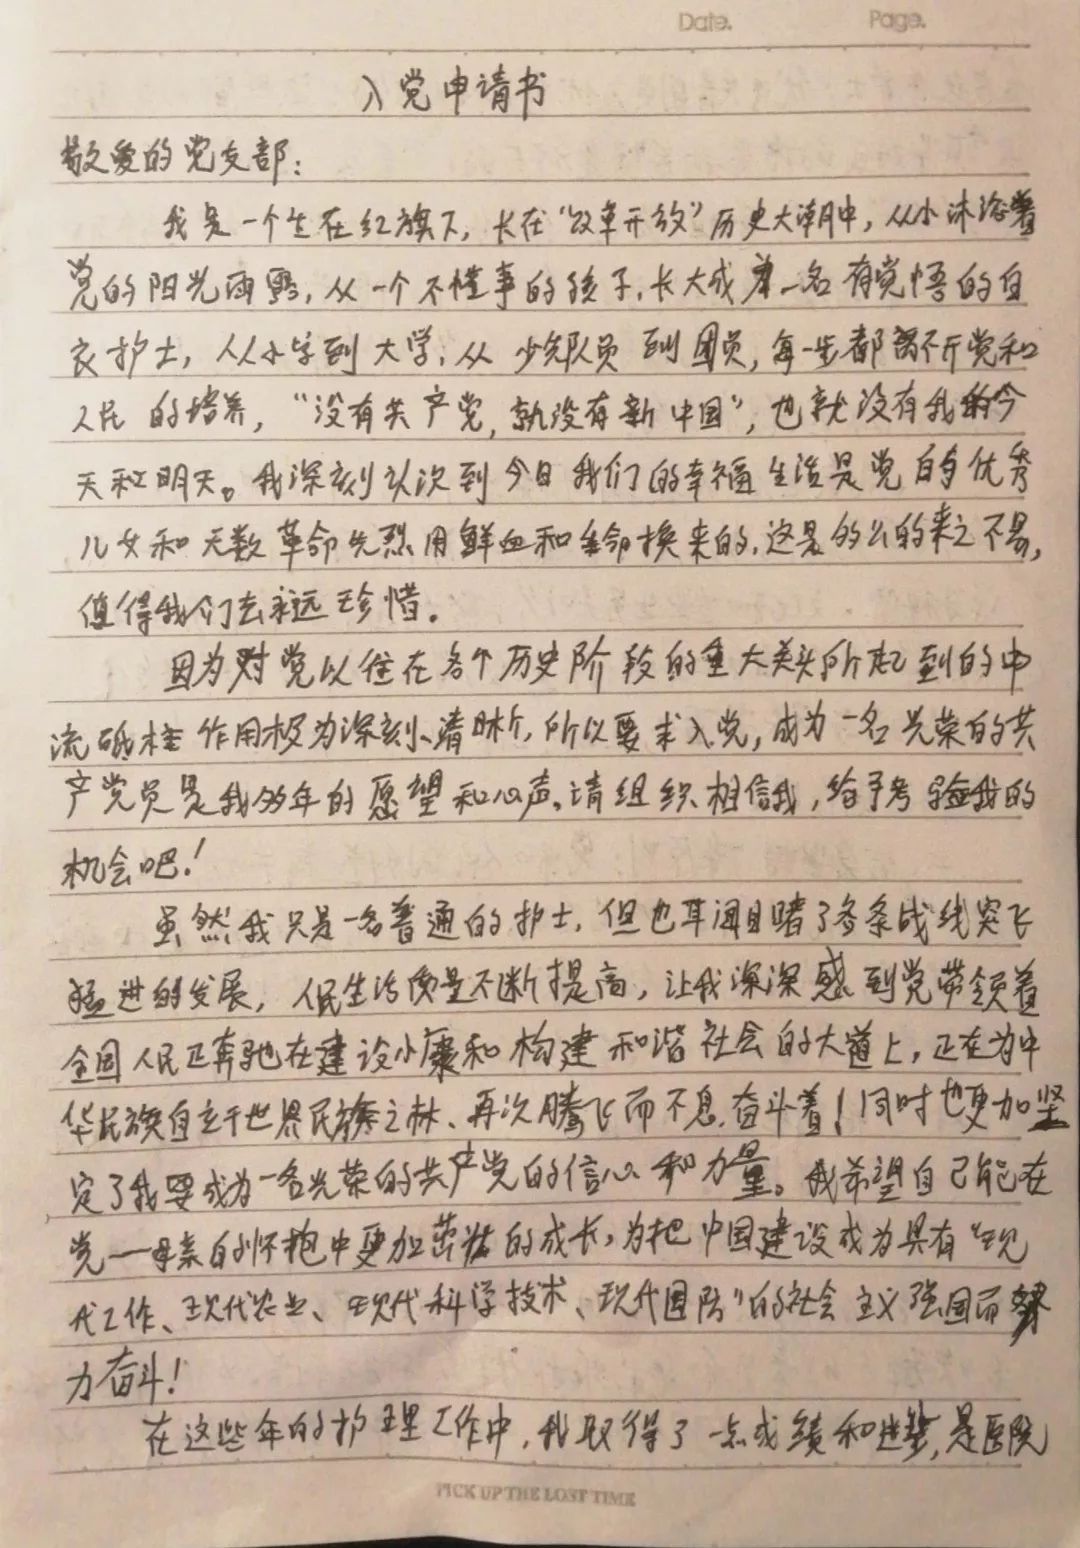 Date.  Page.
入党申请书
敬爱的党支部：
我是一个生在红旗下，长在“改革开放”历史大潮中，从小沐浴着
党的阳光雨露，从一个不懂事的孩子，长大成为一名有觉悟的白
衣护士，从小学到大学，从少先队员到团员，每一步都离不开党和
人民的培养，“没有共产党，就没有新中国”，也就没有我的今
天和明天。我深刻认次到今日我们的幸福生活是党的优秀
儿女和无数革命先烈用鲜血和生命换来的，这是的么的来之不易，
值得我们去永远珍惜。
因为对党以往在各个历史阶段的重大关头所起到的中
流砥柱作用极为深刻、清晰，所以要求入党，成为一名光荣的共
产党员是我多年的愿望和心声。请组织相信我，给予考验我的
机会吧！
虽然我只是一名普通的护士，但也耳闻目睹了各条战线突飞
猛进的发展，人民生活质量不断提高，让我深深感到党带领着
全国人民正奔驰在建设小康和构建和谐社会的大道上，正在为中
华民族自立于世界民族之林、再次腾飞而不息奋斗着！同时也更加坚
定了我要成为一名光荣的共产党的信心和力量。我希望自己能在
党——母亲的怀抱中更加茁壮的成长，为把中国建设成为具有“现
代工作、现代农业、现代科学技术、现代国防”的社会主义强国而努
力奋斗！
在这些年的护理工作中，我取得了一点成绩和进步，是医院
PICK UP THE LOST TIME